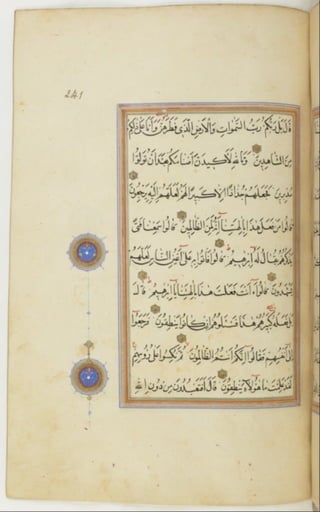 241
قَالَ بَلْ رَبُّكُمْ رَبُّ السَّمٰوَاتِ وَالْاَرْضِ الَّذٖي فَطَرَهُنَّ وَاَنَا عَلٰى ذٰلِكُمْ
مِنَ الشَّاهِدٖينَ وَتَاللّٰهِ لَاَكٖيدَنَّ اَصْنَامَكُمْ بَعْدَ اَنْ تُوَلُّوا
مُدْبِرٖينَ فَجَعَلَهُمْ جُذَاذًا اِلَّا كَبٖيرًا لَهُمْ لَعَلَّهُمْ اِلَيْهِ يَرْجِعُونَ
قَالُوا مَنْ فَعَلَ هٰذَا بِاٰلِهَتِنَا اِنَّهُ لَمِنَ الظَّالِمٖينَ قَالُوا سَمِعْنَا فَتًى
يَذْكُرُهُمْ يُقَالُ لَهُ اِبْرٰهٖيمُ قَالُوا فَاْتُوا بِهٖ عَلٰى اَعْيُنِ النَّاسِ لَعَلَّهُمْ
يَشْهَدُونَ قَالُوا ءَاَنْتَ فَعَلْتَ هٰذَا بِاٰلِهَتِنَا يَا اِبْرٰهٖيمُ قَالَ
بَلْ فَعَلَهُ كَبٖيرُهُمْ هٰذَا فَسْـَٔلُوهُمْ اِنْ كَانُوا يَنْطِقُونَ فَرَجَعُوا
اِلٰى اَنْفُسِهِمْ فَقَالُوا اِنَّكُمْ اَنْتُمُ الظَّالِمُونَ ثُمَّ نُكِسُوا عَلٰى رُؤُسِهِمْ
لَقَدْ عَلِمْتَ مَا هٰؤُلَاءِ يَنْطِقُونَ قَالَ اَفَتَعْبُدُونَ مِنْ دُونِ اللّٰهِ